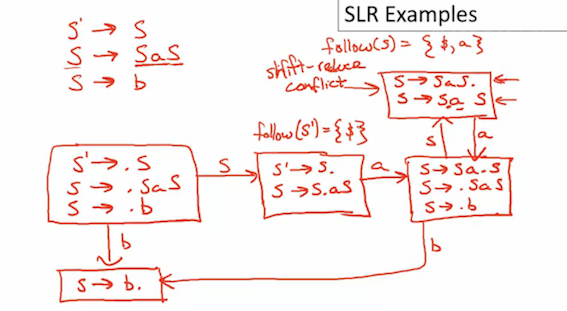 SLR Examples
S' → S
S → SaS
S → b
follow(S) = { $, a }
shift-reduce
conflict
S → SaS.
S → S.a S
follow(S') = { $ }
S' → .S
S → .SaS
S → .b
S
S' → S.
S → S.aS
a
S
a
S → Sa.S
S → .SaS
S → .b
b
b
S → b.